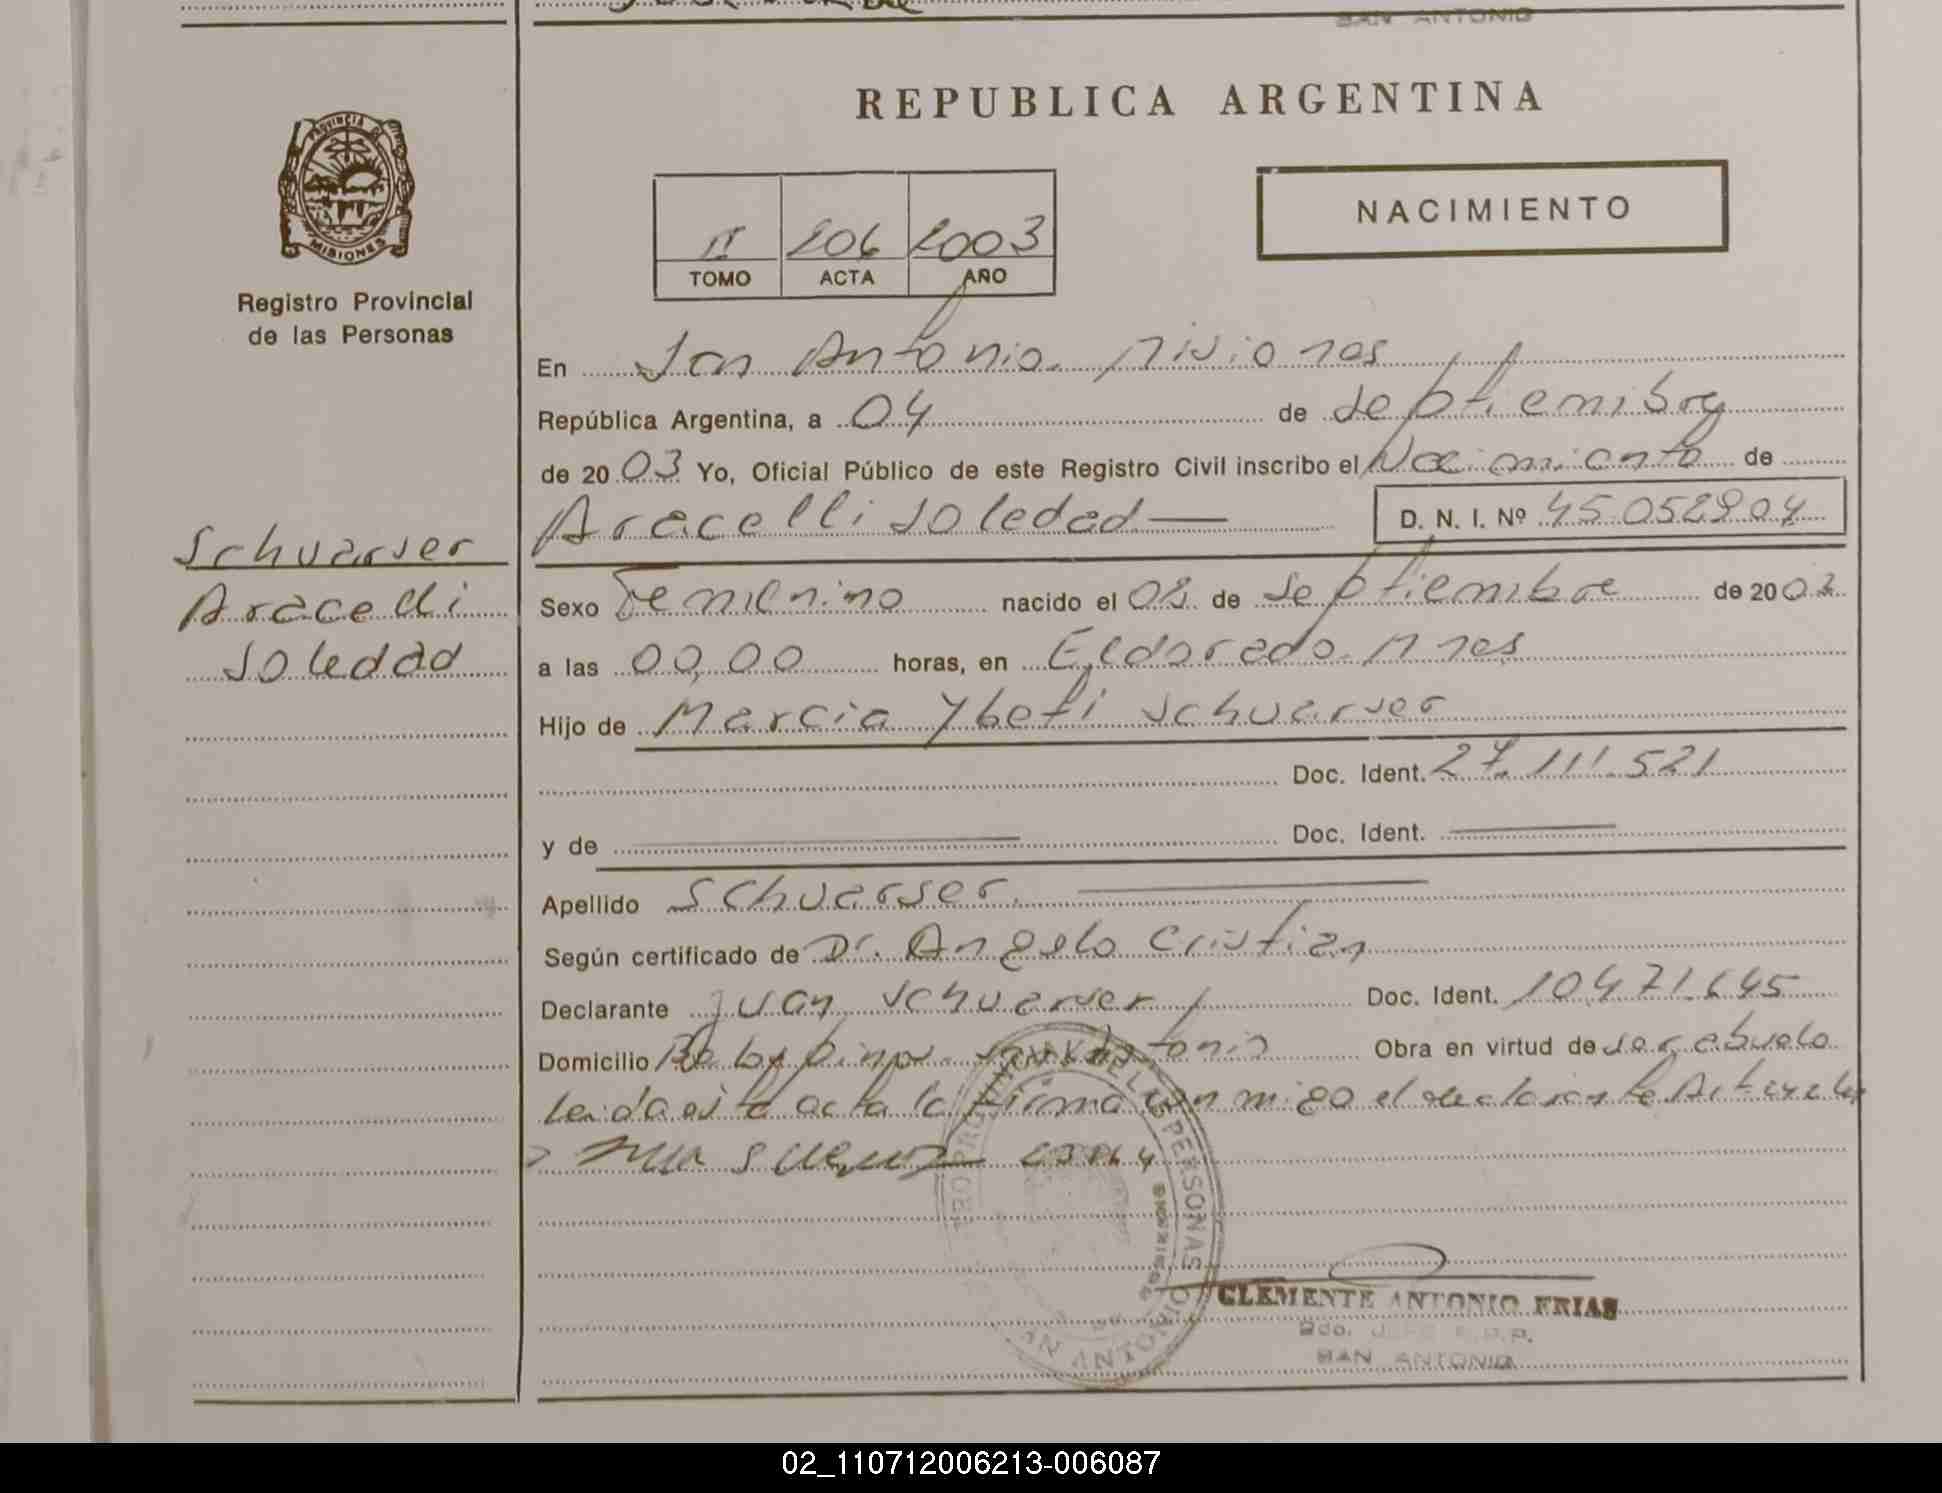 SAN ANTONIO
PROVINCIA DE
MISIONES
Registro Provincial
de las Personas
Schuarser
Aracelli
Soledad
REPUBLICA ARGENTINA
NACIMIENTO
II 206 2003
TOMO ACTA AÑO
En San Antonio. Misiones
República Argentina, a 04 de septiembre
de 2003 Yo, Oficial Público de este Registro Civil inscribo el Nacimiento de
Aracelli Soledad D. N. I. Nº 45.052.904
Sexo Femenino nacido el 02 de septiembre de 2003
a las 00,00 horas, en Eldorado. Mnes
Hijo de Marcia Ybeti Schuarser
Doc. Ident. 27.111.521
y de Doc. Ident.
Apellido Schuarser.
Según certificado de Dr. Angelo Cristian
Declarante Juan Schuarser Doc. Ident. 10.471.645
Domicilio San Antonio Obra en virtud de ser abuelo
Leida esta acta la firma con migo el declarante
REGISTRO PROVINCIAL DE LAS PERSONAS
SAN ANTONIO
CLEMENTE ANTONIO FRIAS
SAN ANTONIO
02_110712006213-006087